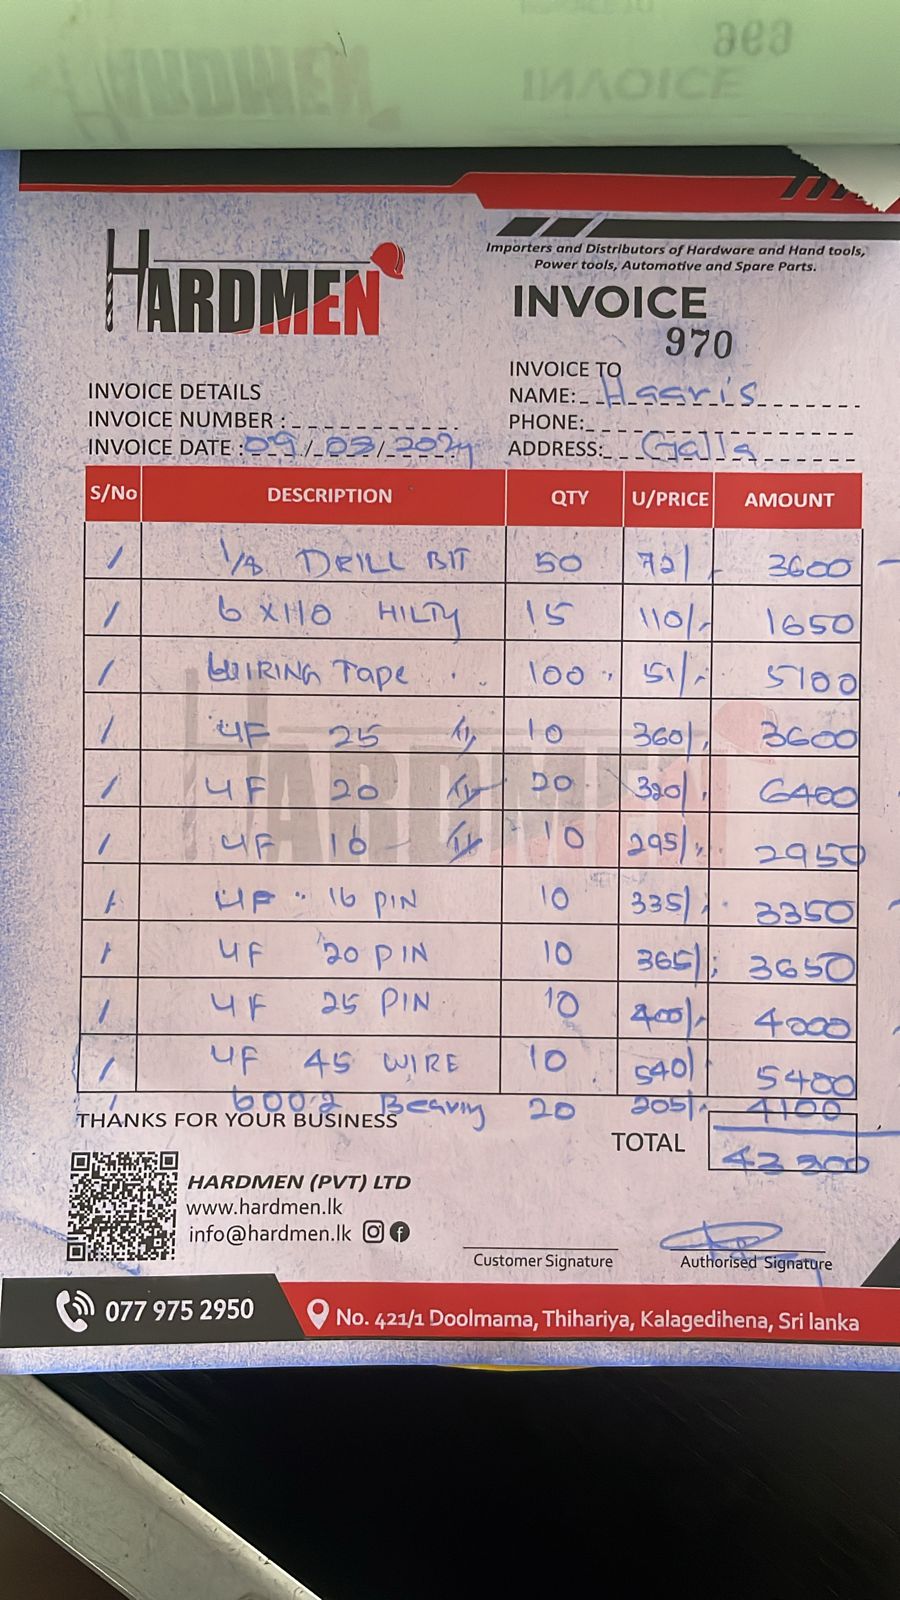 INVOICE
HARDMEN
Importers and Distributors of Hardware and Hand tools,
Power tools, Automotive and Spare Parts.
INVOICE
970
INVOICE DETAILS
INVOICE NUMBER :
INVOICE DATE : 09/03/2024
INVOICE TO
NAME: Haaris
PHONE:
ADDRESS: Galla
S/No DESCRIPTION QTY U/PRICE AMOUNT
/ 1/8 DRILL BIT 50 72/- 3600
/ 6 X110 HILTY 15 110/- 1650
/ WIRING Tape 100 51/- 5100
/ UF 25 10 360/- 3600
/ UF 20 20 320/- 6400
/ UF 16 10 295/- 2950
/ UF 16 PIN 10 335/- 3350
/ UF 20 PIN 10 365/- 3650
/ UF 25 PIN 10 400/- 4000
/ UF 45 WIRE 10 540/ 5400
/ 6002 Bearing 20 205/- 4100
THANKS FOR YOUR BUSINESS
TOTAL
HARDMEN (PVT) LTD
www.hardmen.lk
info@hardmen.lk
Customer Signature
Authorised Signature
077 975 2950
No. 421/1 Doolmama, Thihariya, Kalagedihena, Sri lanka